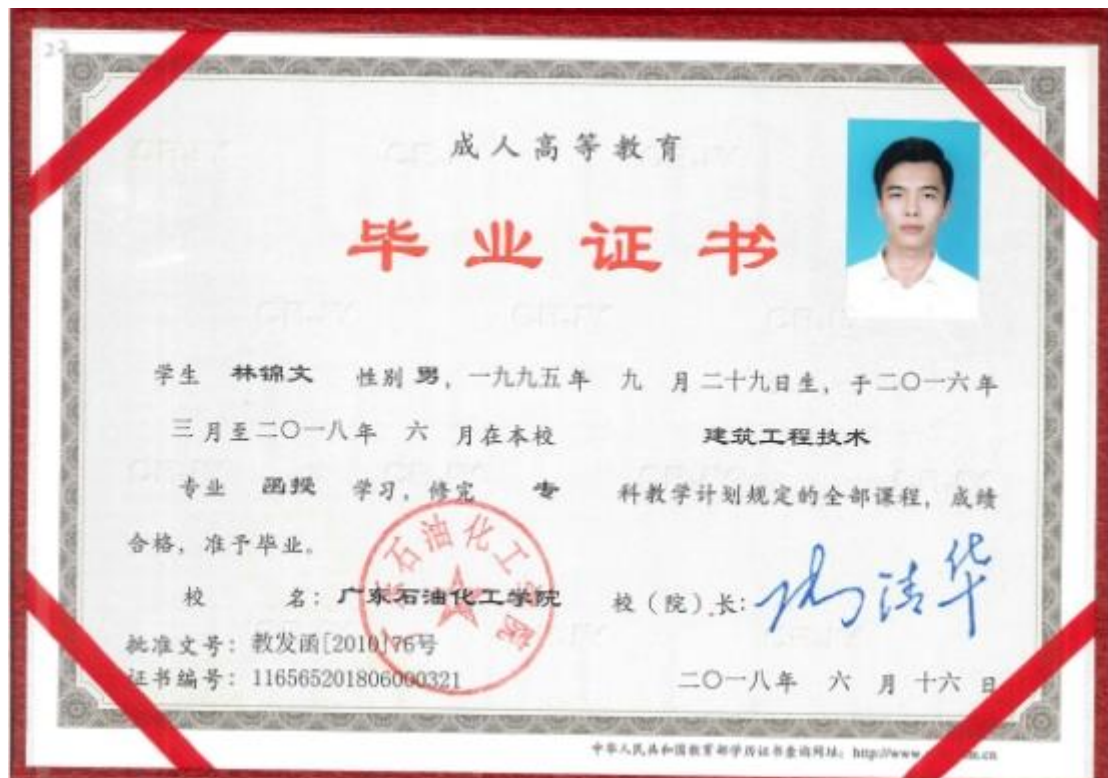 成人高等教育
毕业证书
学生 林锦文 性别 男，一九九五年 九 月二十九日生，于二〇一六年
三月至二〇一八年 六 月在本校 建筑工程技术
专业 函授 学习，修完 专 科教学计划规定的全部课程，成绩
合格，准予毕业。
校 名：广东石油化工学院 校（院）长：
批准文号：教发函[2010]76号
证书编号：116565201806000321 二〇一八年 六 月 十六 日
中华人民共和国教育部学历证书查询网址：http://www